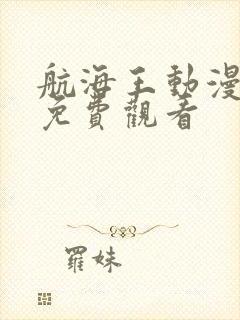 航海王動漫
免費觀看
羅妹